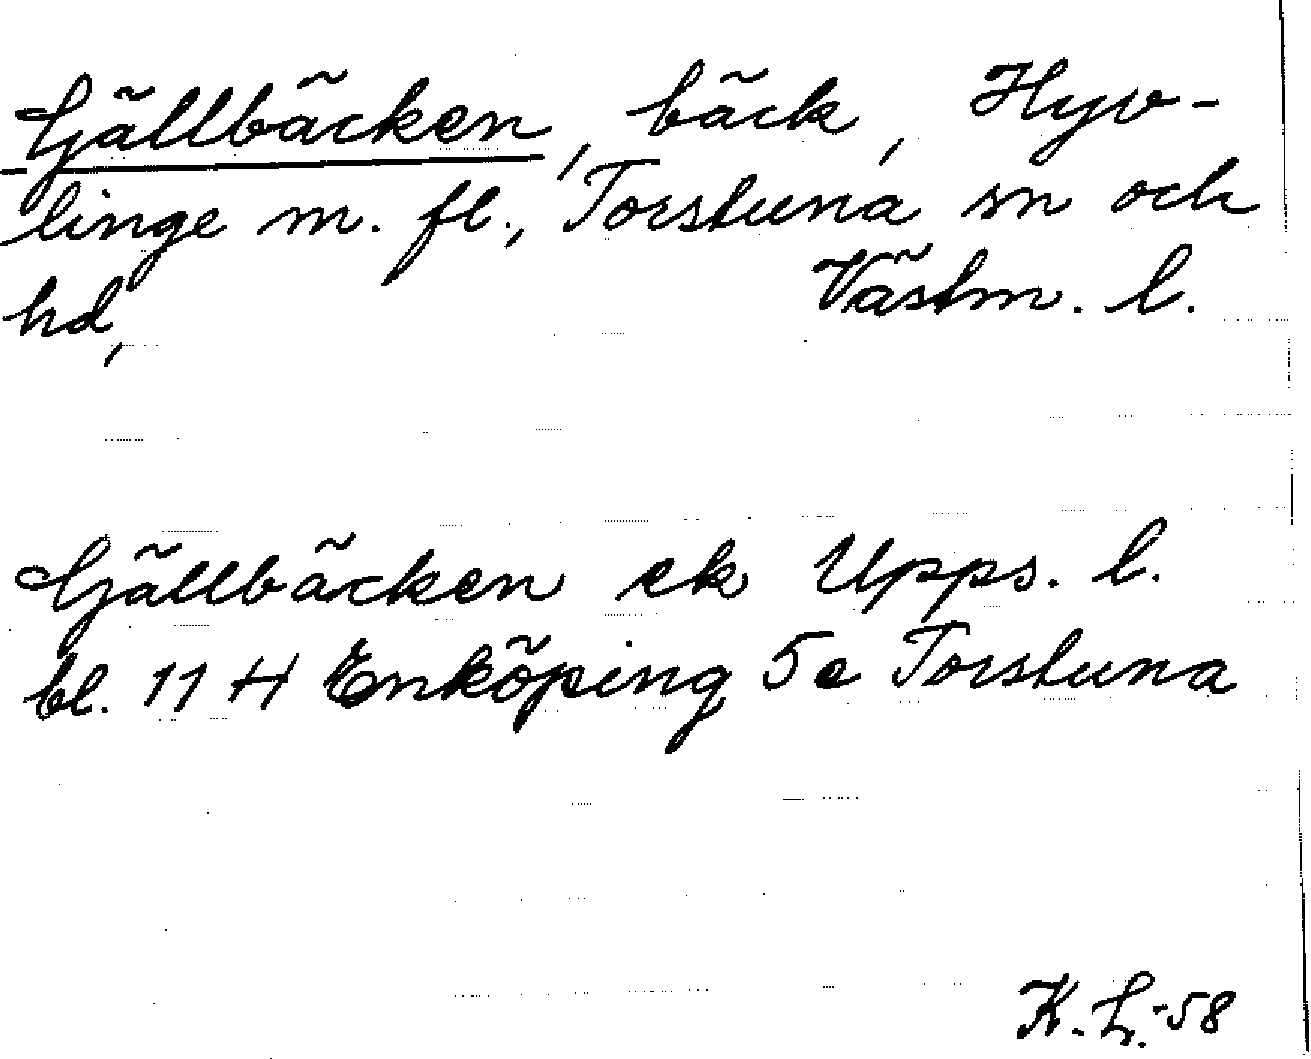 Gjällbäcken, bäck, Hyv-
linge m. fl., Torstuna sn och
hd, Västm. l.
Gjällbäcken ek Upps. l.
bl. 11 H Enköping 5e Torstuna
K. L. -58